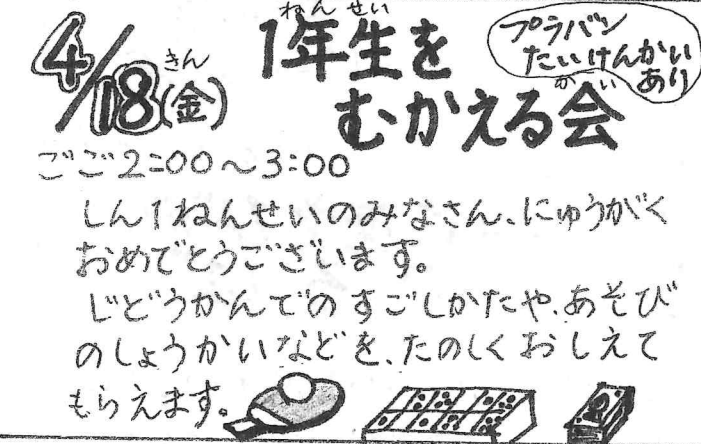 4/18(金)
きん
1年生を
ねんせい
むかえる会
かい
プラバン
たいけんかい
あり
ごご2:00〜3:00
しん1ねんせいのみなさん、にゅうがく
おめでとうございます。
じどうかんでのすごしかたや、あそび
のしょうかいなどを、たのしくおしえて
もらえます。